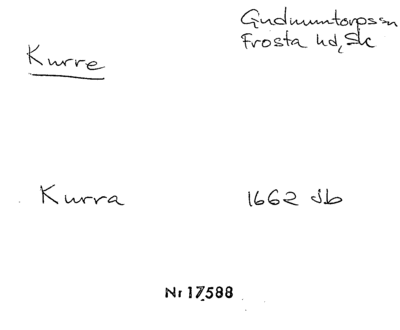 Gudmuntorps sn
Frosta hd, Sk
Kurre
Kurra 1662 Jb
Nr 17588